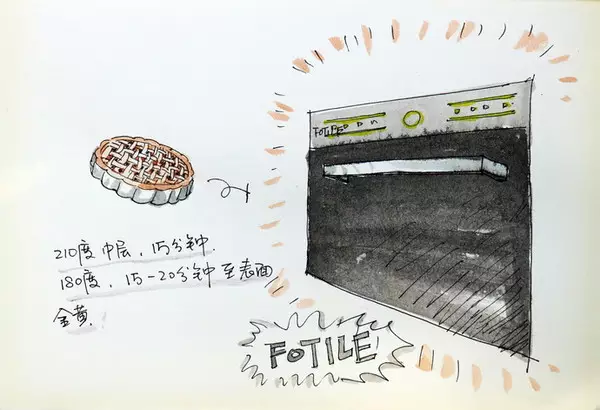 FOTILE
210度中层，15分钟.
180度，15-20分钟至表面
金黄.
FOTILE